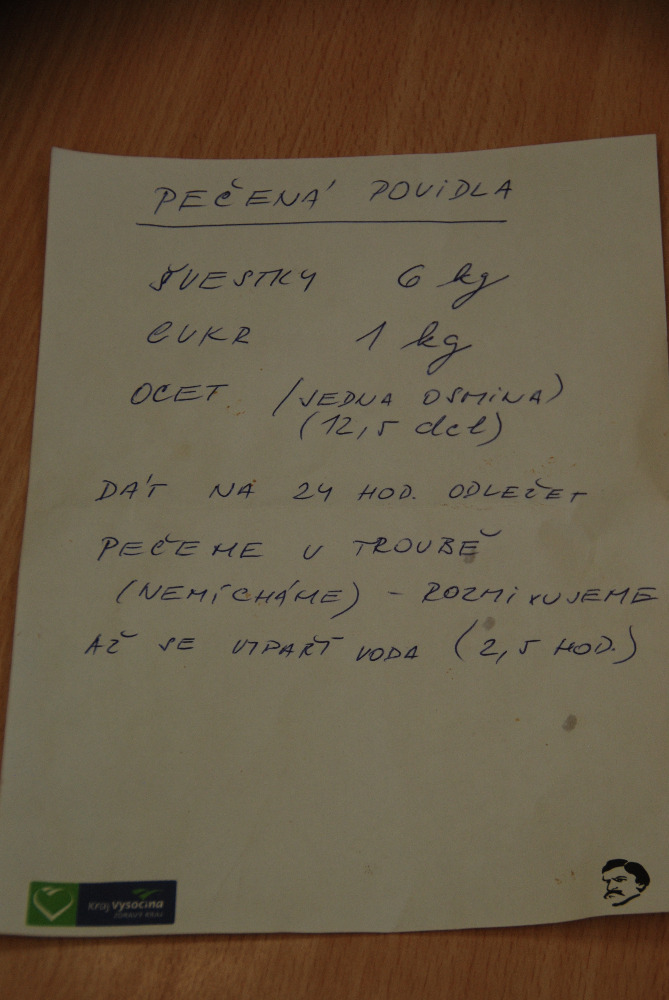 PEČENÁ POVIDLA
ŠVESTKY 6 kg
CUKR 1 kg
OCET /JEDNA OSMINA)
(12,5 dcl)
DÁT NA 24 HOD. ODLEŽET
PEČEME V TROUBĚ
(NEMÍCHÁME) - ROZMIXUJEME
AŽ SE VYPAŘÍ VODA (2,5 HOD.)
Kraj Vysočina
ZDRAVÝ KRAJ